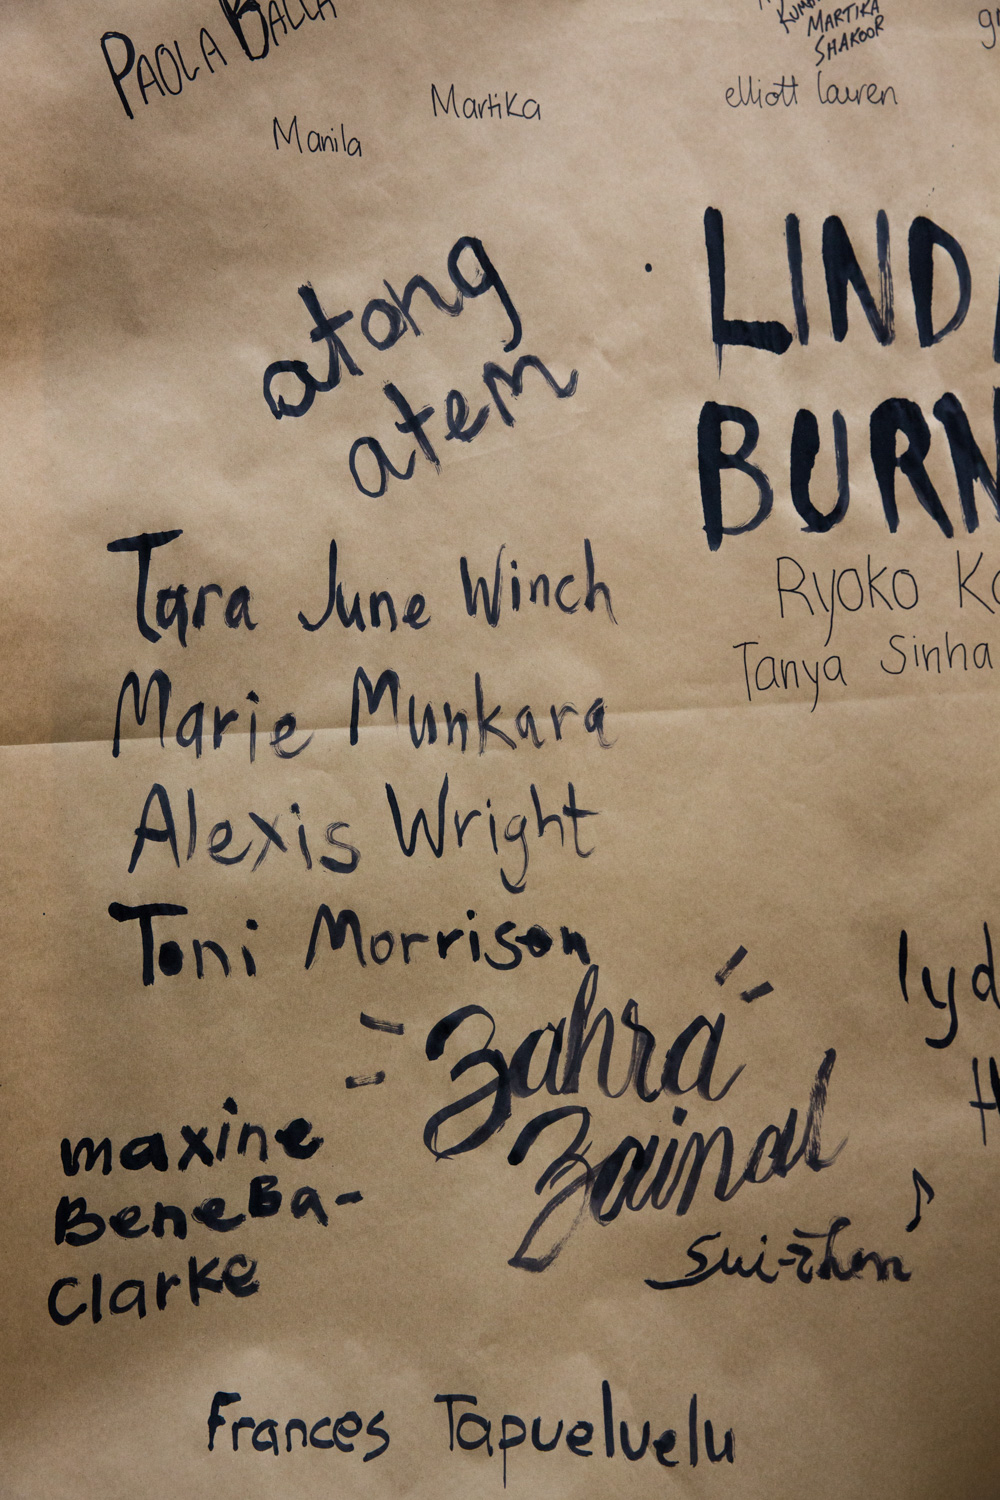 PAOLA BALLA
MARTIKA
SHAKOOR
elliott lauren
Martika
Manila
atong
atem
LIND
BURN
Ryoko Ko
Tanya Sinha
Tara June Winch
Marie Munkara
Alexis Wright
Toni Morrison
lyd
Zahra
Zainal
maxine
BeneBa-
Clarke
Sui-zhen
Frances Tapueluelu